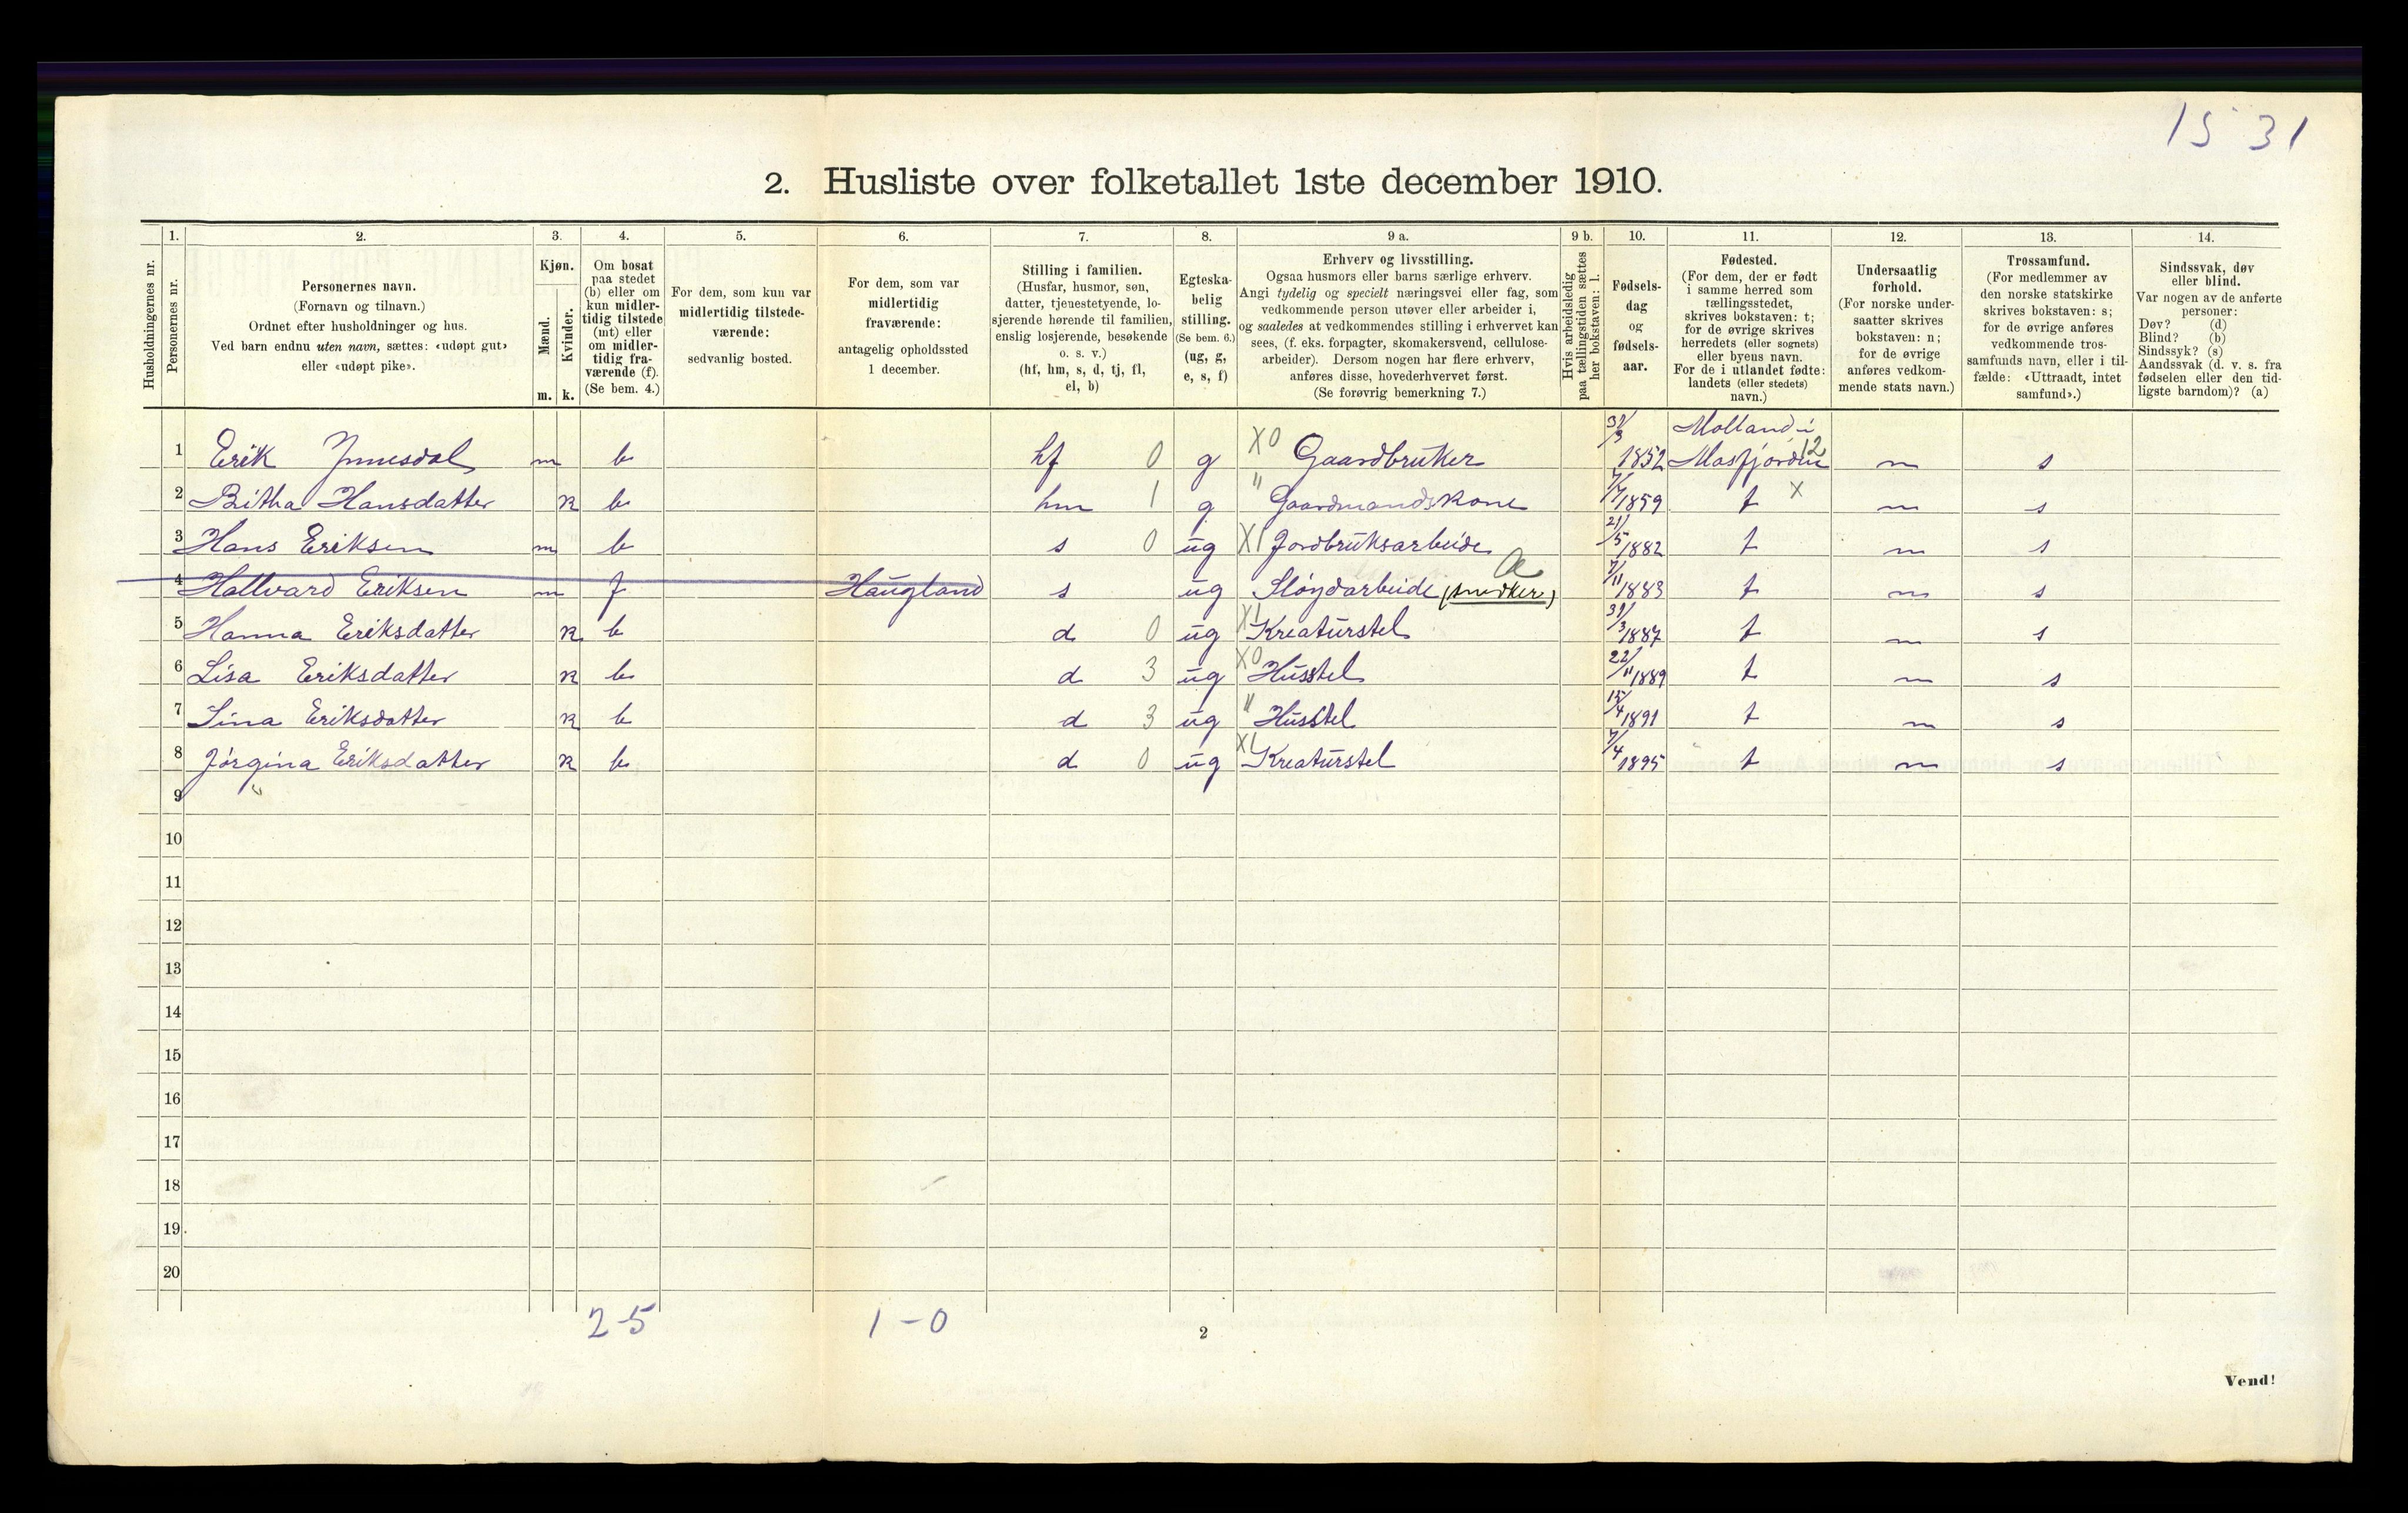 15 31
2. Husliste over folketallet 1ste december 1910.
Husholdningernes nr.
1.
Personernes nr.
2.
Personernes navn.
(Fornavn og tilnavn.)
Ordnet efter husholdninger og hus.
Ved barn endnu uten navn, sættes: «udøpt gut»
eller «udøpt pike».
3.
Kjøn.
Mænd.
Kvinder.
m. k.
4.
Om bosat
paa stedet
(b) eller om
kun midler-
tidig tilstede
(mt) eller
om midler-
tidig fra-
værende (f).
(Se bem. 4.)
5.
For dem, som kun var
midlertidig tilstede-
værende:
sedvanlig bosted.
6.
For dem, som var
midlertidig
fraværende:
antagelig opholdssted
1 december.
7.
Stilling i familien.
(Husfar, husmor, søn,
datter, tjenestetyende, lo-
sjerende hørende til familien,
enslig losjerende, besøkende
o. s. v.)
(hf, hm, s, d, tj, fl,
el, b)
8.
Egteska-
belig
stilling.
(Se bem. 6.)
(ug, g,
e, s, f)
9 a.
Erhverv og livsstilling.
Ogsaa husmors eller barns særlige erhverv.
Angi tydelig og specielt næringsvei eller fag, som
vedkommende person utøver eller arbeider i,
og saaledes at vedkommendes stilling i erhvervet kan
sees, (f. eks. forpagter, skomakersvend, cellulose-
arbeider). Dersom nogen har flere erhverv,
anføres disse, hovederhvervet først.
(Se forøvrig bemerkning 7.)
9 b.
Hvis arbeidsledig
paa tællingstiden sættes
her bokstaven: l.
10.
Fødsels-
dag
og
fødsels-
aar.
11.
Fødested.
(For dem, der er født
i samme herred som
tællingsstedet,
skrives bokstaven: t;
for de øvrige skrives
herredets (eller sognets)
eller byens navn.
For de i utlandet fødte:
landets (eller stedets)
navn.)
12.
Undersaatlig
forhold.
(For norske under-
saatter skrives
bokstaven: n;
for de øvrige
anføres vedkom-
mende stats navn.)
13.
Trossamfund.
(For medlemmer av
den norske statskirke
skrives bokstaven: s;
for de øvrige anføres
vedkommende tros-
samfunds navn, eller i til-
fælde: «Uttraadt, intet
samfund».)
14.
Sindssvak, døv
eller blind.
Var nogen av de anførte
personer:
Døv? (d)
Blind? (b)
Sindssyk? (s)
Aandssvak (d. v. s. fra
fødselen eller den tid-
ligste barndom)? (a)
1 Erik m b hf 0 g X0 Gaardbruker 31/3 1852 Molland i Masfjorden 12 n s
2 Britha Hansdatter k b hm 1 g " Gaardmandskone 7/7 1859 t X n s
3 Hans Eriksen m b s 0 ug X1 Jordbruksarbeide 21/5 1882 t n s
4 Hallvard Eriksen m f Haugland s ug Sløydarbeide (snedker) a 7/11 1883 t n s
5 Hanna Eriksdatter k b d 0 ug X1 Kreaturstel 31/3 1887 t n s
6 Lisa Eriksdatter k b d 3 ug X0 Husstel 22/11 1889 t n s
7 Lina Eriksdatter k b d 3 ug " Husstel 15/4 1891 t n s
8 Jørgina Eriksdatter k b d 0 ug X1 Kreaturstel 7/4 1895 t n s
9
10
11
12
13
14
15
16
17
18
19
20
2-5 1-0
2
Vend!